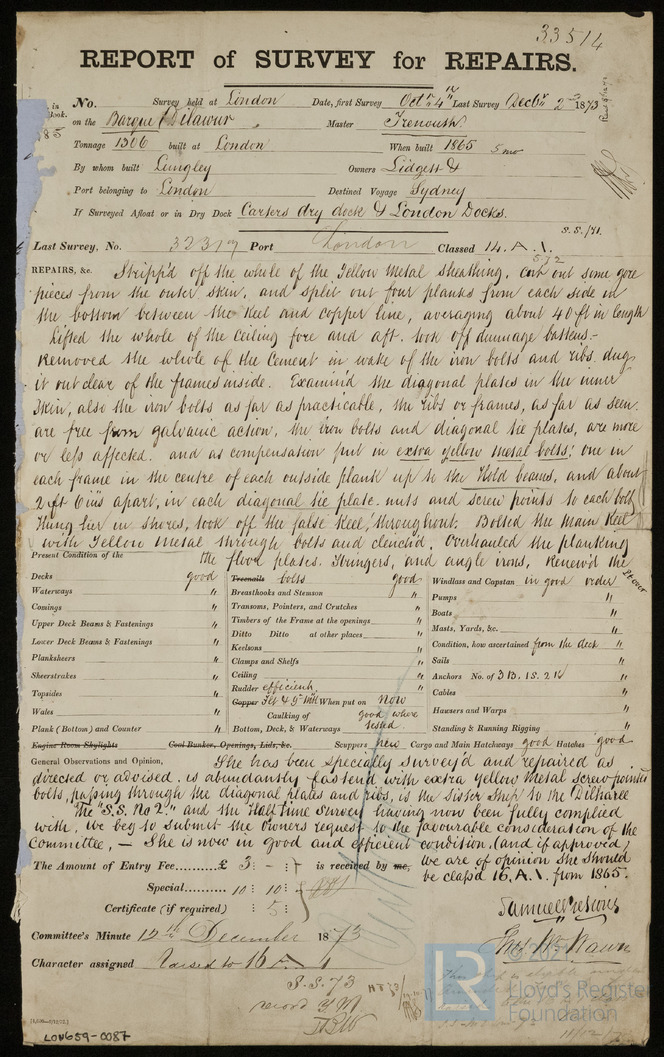 33514
REPORT of SURVEY for REPAIRS.
No. Survey held at London Date, first Survey Octr. 4th Last Survey Decbr. 2nd 1873
on the Barque Master Trenouth
Tonnage 1306 built at London When built 1865 5 mo
By whom built Langley Owners Lidgett &
Port belonging to London Destined Voyage Sydney
If Surveyed Afloat or in Dry Dock Carters dry dock & London Docks.
S.S./71.
Last Survey, No. Port London Classed 14. A.1.
REPAIRS, &c. Stripp'd off the whole of the Yellow Metal sheathing, cut out some gore
pieces from the outer skin, and split out four planks from each side in
the bottom between the Keel and copper line, averaging about 40 ft in length
Lifted the whole of the Ceiling fore and aft. took off dunnage battens.-
Removed the whole of the Cement in wake of the iron bolts and ribs. dug
it out clear of the frames inside. Examin'd the diagonal plates in the inner
Skin, also the iron bolts as far as practicable, the ribs or frames, as far as seen.
are free from galvanic action, the iron bolts and diagonal tie plates, are more
or less affected. and as compensation put in extra yellow metal bolts; one in
each frame in the centre of each outside plank up to the Hold beams, and about
2 ft 6 ins apart, in each diagonal tie plate. nuts and screw points to each bolt
Hung her in shores, took off the false Keel, throughout. Bolted the Main Keel
with Yellow Metal through bolts and clench'd. Overhauled the planking
the floor plates. Stringers, and angle irons, Renew'd the
Pt over
Present Condition of the
Decks good
Waterways "
Comings "
Upper Deck Beams & Fastenings "
Lower Deck Beams & Fastenings "
Planksheers "
Sheerstrakes "
Topsides "
Wales "
Plank (Bottom) and Counter "
Engine Room Skylights
Treenails bolts good
Breasthooks and Stemson "
Transoms, Pointers, and Crutches "
Timbers of the Frame at the openings "
Ditto Ditto at other places "
Keelsons "
Clamps and Shelfs "
Ceiling "
Rudder efficient "
Copper When put on Now
Caulking of good where
Bottom, Deck, & Waterways tested.
Coal Bunker, Openings, Lids, &c.
Windlass and Capstan in good order
Pumps "
Boats "
Masts, Yards, &c. "
Condition, how ascertained from the deck "
Sails "
Anchors No. of 3 B. 1 S. 2 K "
Cables "
Hawsers and Warps "
Standing & Running Rigging "
Scuppers new Cargo and Main Hatchways good Hatches good
General Observations and Opinion, She has been specially survey'd and repaired as
directed or advised. is abundantly fasten'd with extra yellow metal screw pointed
bolts, passing through the diagonal plates and ribs, is the Sister Ship to the Dilharee
The "S.S. No 2." and the Half Time Survey having now been fully complied
with, we beg to submit the Owners request to the favourable consideration of the
Committee, — She is now in good and efficient condition, (and if approved)
we are of opinion She should
be class'd 16. A.1. from 1865.
The Amount of Entry Fee £ 3 : - : - is received by me,
Special 10 : 10 :
Certificate (if required) : 5 :
Committee's Minute 12th December 1873
Character assigned Raised to 16 A 1
S.S. 73
record Y.M.
LR
Lloyd's Register
Foundation
LON659-0087